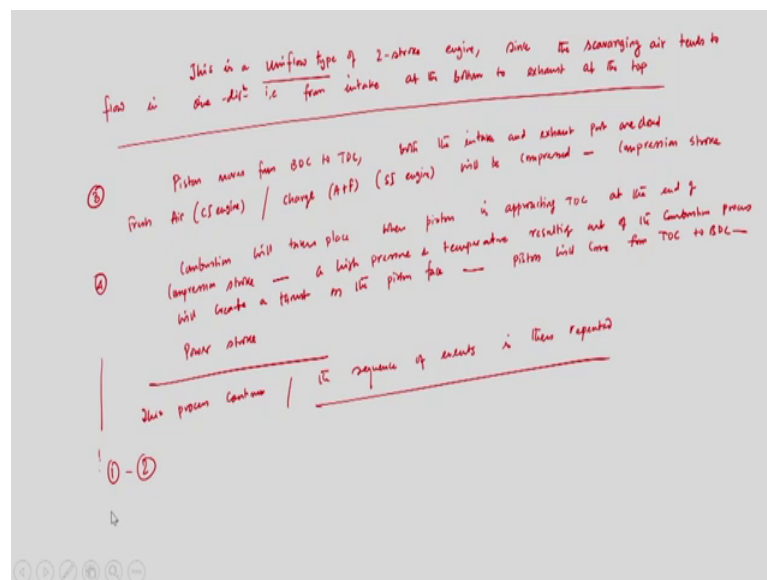 This is a uniflow type of 2-stroke engine, since the scavanging air tends to
flow in one-dirn i.e from intake at the bottom to exhaust at the top
③ Piston moves from BDC to TDC, both the intake and exhaust port are closed
Fresh Air (CI engine) / Charge (A+F) (SI engine) will be compressed — Compression stroke
④ Combustion will takes place when piston is approaching TDC at the end of
Compression stroke — a high pressure & temperature resulting out of the Combustion process
will create a thrust on the piston face — piston will come from TDC to BDC —
Power stroke
This process continues / the sequence of events is then repeated
① - ②